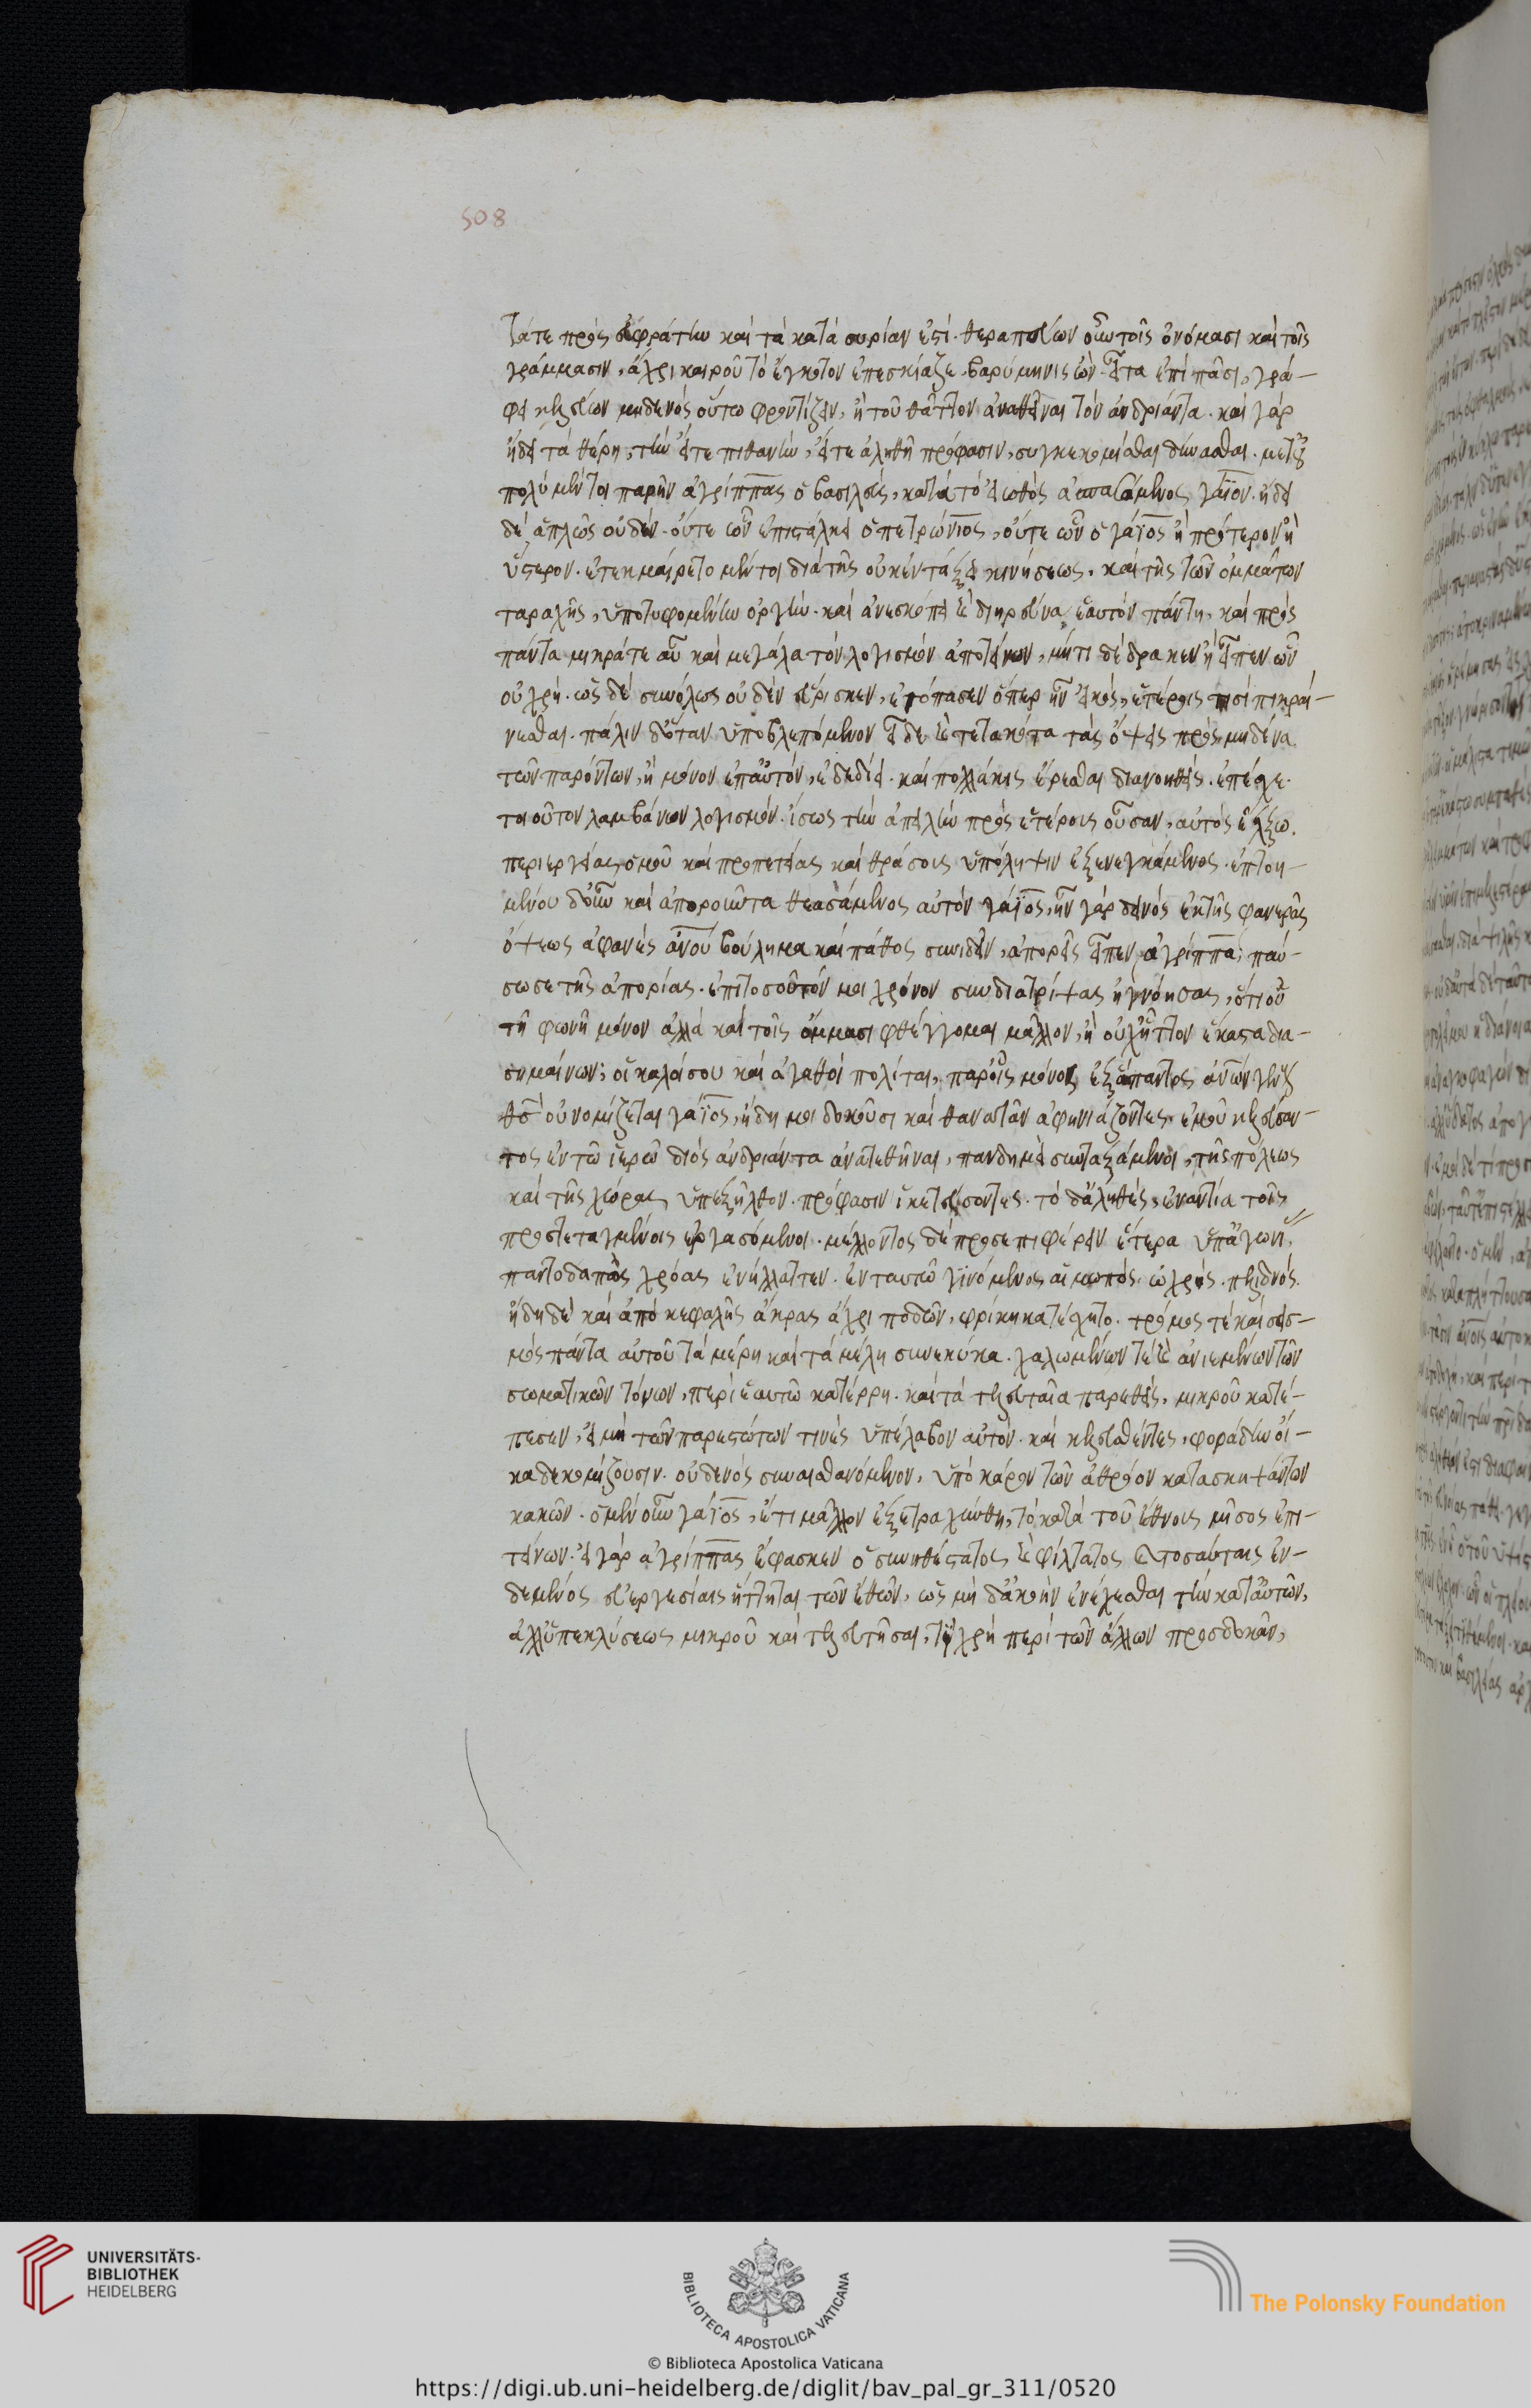 508
τά τε πρὸς εὐφράτην καὶ τὰ κατὰ συρίαν ἐστί. θεραπεύων οὖν τοῖς ὀνόμασι καὶ τοῖς
γράμμασιν, ἄχρι καιροῦ τὸ ἔγκοτον ἐπεσκίαζε, βαρύμηνις ὤν. εἶτα ἐπὶ πᾶσι, γρά-
φει κελεύων μηδενὸς οὕτω φροντίζειν, ἢ τοῦ θᾶττον ἀναθεῖναι τὸν ἀνδριάντα. καὶ γὰρ
ἤδη τὰ θέρη, τὴν εἴτε πιθανὴν, εἴτε ἀληθῆ πρόφασιν, συγκεκομίσθαι δύνασθαι. μετ᾽ οὐ
πολὺ μέντοι παρῆν ἀγρίππας ὁ βασιλεὺς, κατὰ τὸ εἰωθὸς ἀσπασόμενος γάϊον. ᾔδει
δὲ ἁπλῶς οὐδὲν. οὔτε ὧν ἐπεστάλκει ὁ πετρώνιος, οὔτε ὧν ὁ γάϊος ἢ πρότερον ἢ
ὕστερον. ἐτεκμαίρετο μέντοι διὰ τῆς οὐκ ἐν τάξει κινήσεως, καὶ τῆς τῶν ὀμμάτων
ταραχῆς, ὑποτυφομένην ὀργήν. καὶ ἀνεσκόπει καὶ διηρεύνα ἑαυτὸν πάντη, καὶ πρὸς
πάντα μικρά τε αὖ καὶ μεγάλα τὸν λογισμὸν ἀποτείνων, μή τι δέδρακεν ἢ εἶπεν ὧν
οὐ χρή. ὡς δὲ συνόλως οὐδὲν εὕρισκεν, ἐτόπασεν ὅπερ ἦν εἰκὸς, ἑτέροις τισὶ πικραί-
νεσθαι. πάλιν δ᾽ ὅταν ὑποβλεπόμενον εἶδε καὶ τετακότα τὰς ὄψεις πρὸς μηδένα
τῶν παρόντων, ἢ μόνον ἐπ᾽ αὐτὸν, ἐδεδίει. καὶ πολλάκις ἔρεσθαι διανοηθεὶς, ἐπέσχε.
τοιοῦτον λαμβάνων λογισμόν. ἴσως τὴν ἀπειλὴν πρὸς ἑτέρους οὖσαν, αὐτὸς ἕλξω.
περιεργίας ὁμοῦ καὶ προπετείας καὶ θράσους ὑπόληψιν ἐξενεγκάμενος. ἐπτοη-
μένον δ᾽ οὖν καὶ ἀποροῦντα θεασάμενος αὐτὸν γάϊος, ἦν γὰρ δεινὸς ἐκ τῆς φανερᾶς
ὄψεως ἀφανὲς ἀνου βούλημα καὶ πάθος συνιδεῖν, ἀπορεῖς εἶπεν ἀγρίππα; παύ-
σω σε τῆς ἀπορίας. ἐπὶ τοσοῦτόν μοι χρόνον συνδιατρίψας ἠγνόησας, ὅτι οὐ
τῇ φωνῇ μόνον ἀλλὰ καὶ τοῖς ὄμμασι φθέγγομαι μᾶλλον, ἢ οὐχ ἧττον ἕκαστα δια-
σημαίνων; οἱ καλοί σου καὶ ἀγαθοὶ πολίται, παρ᾽ οἷς μόνοις ἐξ ἅπαντος ἀνων γένους
θς οὐ νομίζεται γάϊος, ἤδη μοι δοκοῦσι καὶ θανατᾶν ἀφηνιάζοντες. ἐμοῦ κελεύσαν-
τος ἐν τῷ ἱερῷ διὸς ἀνδριάντα ἀνατεθῆναι, πανδημεὶ συνταξάμενοι, τῆς πόλεως
καὶ τῆς χώρας ὑπεξῆλθον. πρόφασιν ἱκετεύσοντες. τὸ δ᾽ ἀληθὲς, ἐναντία τοῖς
προστεταγμένοις ἐργασόμενοι. μέλλοντος δὲ προσεπιφέρειν ἕτερα ὑπ᾽ ἀγωνίας
παντοδαπὰς χρόας ἐνήλλαττεν. ἐν ταυτῷ γινόμενος αἱμωπός. ὠχρός. πελιδνός.
ἤδη δὲ καὶ ἀπὸ κεφαλῆς ἄκρας ἄχρι ποδῶν, φρίκη κατέσχητο. τρόμος τὲ καὶ σεισ-
μὸς πάντα αὐτοῦ τὰ μέρη καὶ τὰ μέλη συνεκύκα. χαλωμένων τὲ καὶ ἀνιεμένων τῶν
σωματικῶν τόνων, περὶ ἑαυτῷ κατέρρει. καὶ τὰ τελευταῖα παρεθεὶς, μικροῦ κατέ-
πεσεν, εἰ μὴ τῶν παρεστώτων τινὲς ὑπέλαβον αὐτόν. καὶ κελευσθέντες, φοράδην οἴ-
καδε κομίζουσιν. οὐδενὸς συναισθανόμενον, ὑπὸ κάρου τῶν ἀθρόον κατασκηψάντων
κακῶν. ὁ μὲν οὖν γάϊος, ἔτι μᾶλλον ἐξετραχύνθη, τὸ κατὰ τοῦ ἔθνους μῖσος ἐπι-
τείνων. εἰ γὰρ ἀγρίππας ἔφασκεν ὁ συνηθέστατος καὶ φίλτατος καὶ τοσαύταις ἐν-
δεμένος εὐεργεσίαις ἥττηται τῶν ἐθῶν, ὡς μὴ δ᾽ ἀκοὴν ἀνέχεσθαι τὴν κατ᾽ αὐτῶν,
ἀλλ᾽ ὑπ᾽ ἐκλύσεως μικροῦ καὶ τελευτῆσαι, τί χρὴ περὶ τῶν ἄλλων προσδοκᾶν,
UNIVERSITÄTS-
BIBLIOTHEK
HEIDELBERG
BIBLIOTECA APOSTOLICA VATICANA
The Polonsky Foundation
© Biblioteca Apostolica Vaticana
https://digi.ub.uni-heidelberg.de/diglit/bav_pal_gr_311/0520